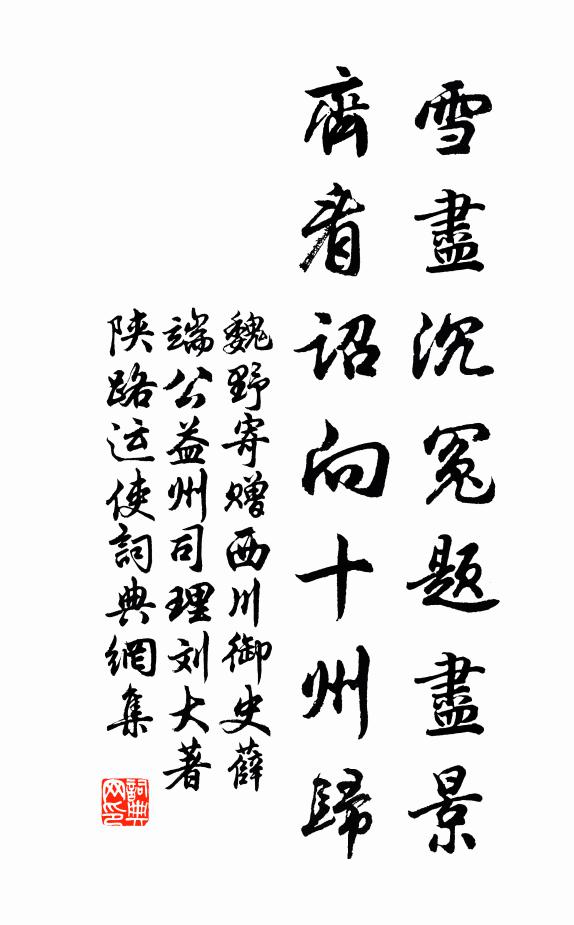 雪盡沉冤題盡景
齊看詔向十州歸
魏野寄贈西川御史薛
端公益州司理刘大著
陕路运使詞典網集
詞典网印